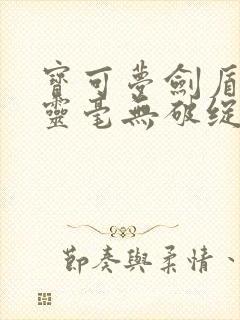 寶可夢劍盾
靈毫無破綻
節奏與柔情、